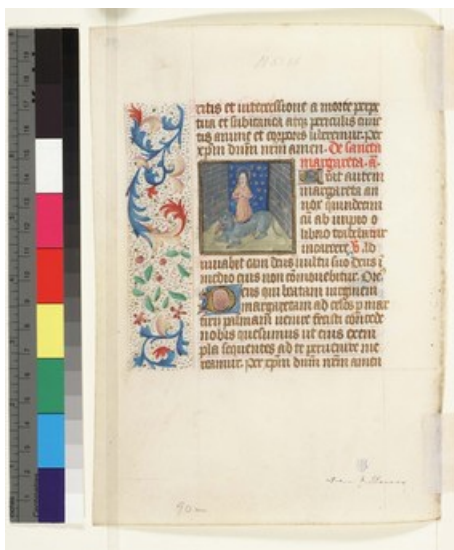 ritis et intercessione a morte perpe
tua et subitanea atq periculis cunc
tis anime et corporis liberemur. per
xpm dnm nrm amen. De sancta
margareta. a.
Erat autem
margareta an
nor quindecim
cu ab impio o
librio
martere V. Ad
iuuabit eam deus uultu suo deus i
medio eius non comouebitur. Ore
Deus qui beatam uirginem
margaretam ad celos p mar
tirij palmam uenire fecisti concede
nobis quesumus ut eius exem
pla sequentes ad te peruenire me
reamur. per xpm dnm nrm amen